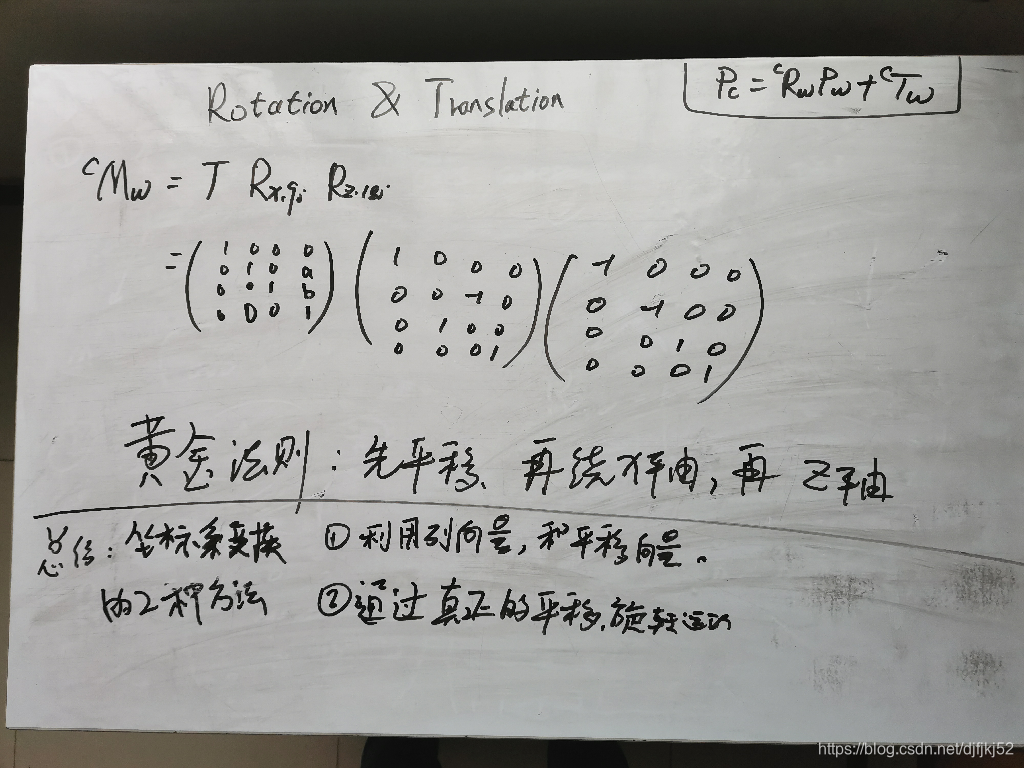 Rotation & Translation
Pc = ᶜRw Pw + ᶜTw
ᶜMw = T Rx,90 Rz,180
= (1 0 0 0) (1 0 0 0) (-1 0 0 0)
(0 1 0 a) (0 0 -1 0) (0 -1 0 0)
(0 0 1 b) (0 1 0 0) (0 0 1 0)
(0 0 0 1) (0 0 0 1) (0 0 0 1)
黄金法则:先平移、再绕X轴,再Z轴
总结:坐标系变换 ①利用列向量,和平移向量.
的2种方法 ②通过真正的平移,旋转运动
https://blog.csdn.net/djfjkj52